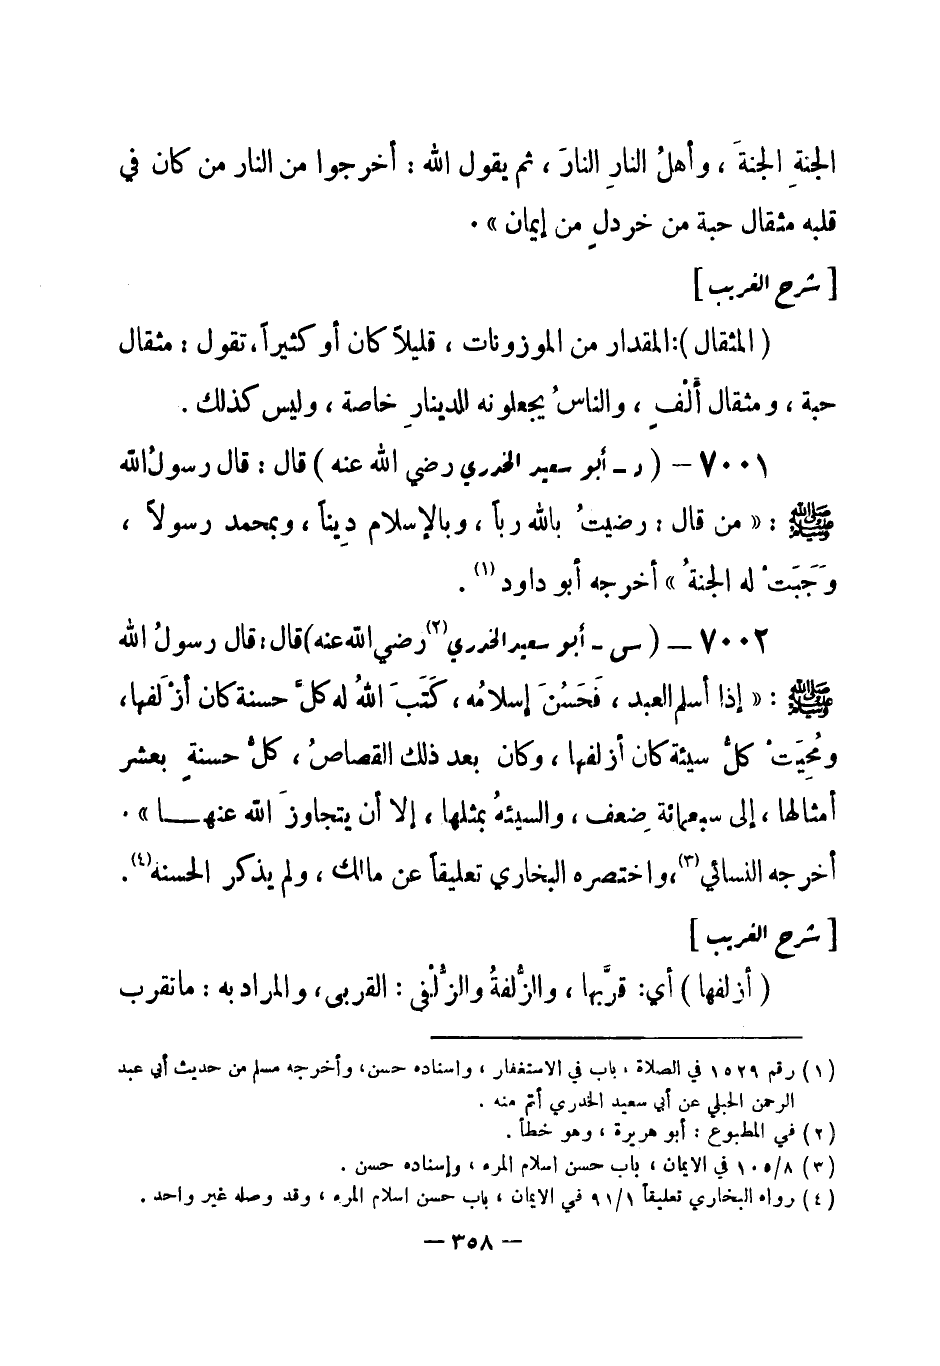 الجنةِ الجنةَ ، وأهلُ النارِ النارَ ، ثم يقول الله : أخرجوا من النار من كان في
قلبه مثقال حبة من خردلٍ من إيمان » .
[ شرح الغريب ]
( المثقال ):المقدار من الموزونات ، قليلاً كان أو كثيراً، تقول : مثقال
حبة ، ومثقال أَلْفٍ ، والناسُ يجعلونه للدينارِ خاصة ، وليس كذلك .
٧٠٠١ – ( د – أبو سعيد الخدري رضي الله عنه ) قال : قال رسولُ الله
ﷺ : « من قال : رضيتُ بالله رباً ، وبالإسلام دِيناً ، وبمحمد رسولاً ،
وَجَبَتْ له الجنةُ » أخرجه أبو داود (١) .
٧٠٠٢ – ( س – أبو سعيد الخدري(٢) رضي الله عنه) قال : قال رسولُ الله
ﷺ : « إذا أسلم العبد ، فَحَسُنَ إسلامُه ، كَتَبَ اللهُ له كلَّ حسنة كان أزْلَفها،
ومُحِيَتْ كلُّ سيئة كان أزلفها ، وكان بعد ذلك القصاصُ ، كلُّ حسنةٍ بعشر
أمثالها ، إلى سبعمائة ضِعف ، والسيئةُ بمثلها ، إلا أن يتجاوزَ الله عنهـــا » .
أخرجه النسائي(٣)، واختصره البخاري تعليقاً عن مالك ، ولم يذكر الحسنه(٤).
[ شرح الغريب ]
( أزلفها ) أي: قرَّبها ، والزُّلفةُ والزُّلْفى : القربى، والمراد به : ما تقرب
(١) رقم ١٥٢٩ في الصلاة ، باب في الاستغفار ، وإسناده حسن، وأخرجه مسلم من حديث أبي عبد
الرحمن الحبلي عن أبي سعيد الخدري أتم منه .
(٢) في المطبوع : أبو هريرة ، وهو خطأ .
(٣) ١٠٥/٨ في الايمان ، باب حسن اسلام المرء ، وإسناده حسن .
(٤) رواه البخاري تعليقاً ٩١/١ في الايمان ، باب حسن اسلام المرء ، وقد وصله غير واحد .
– ٣٥٨ –